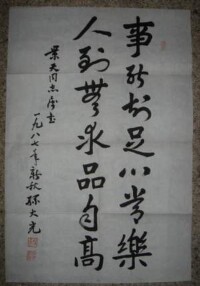 事能知足心常樂
人到無求品自高
景天同志属书
一九八七年新秋孫大光